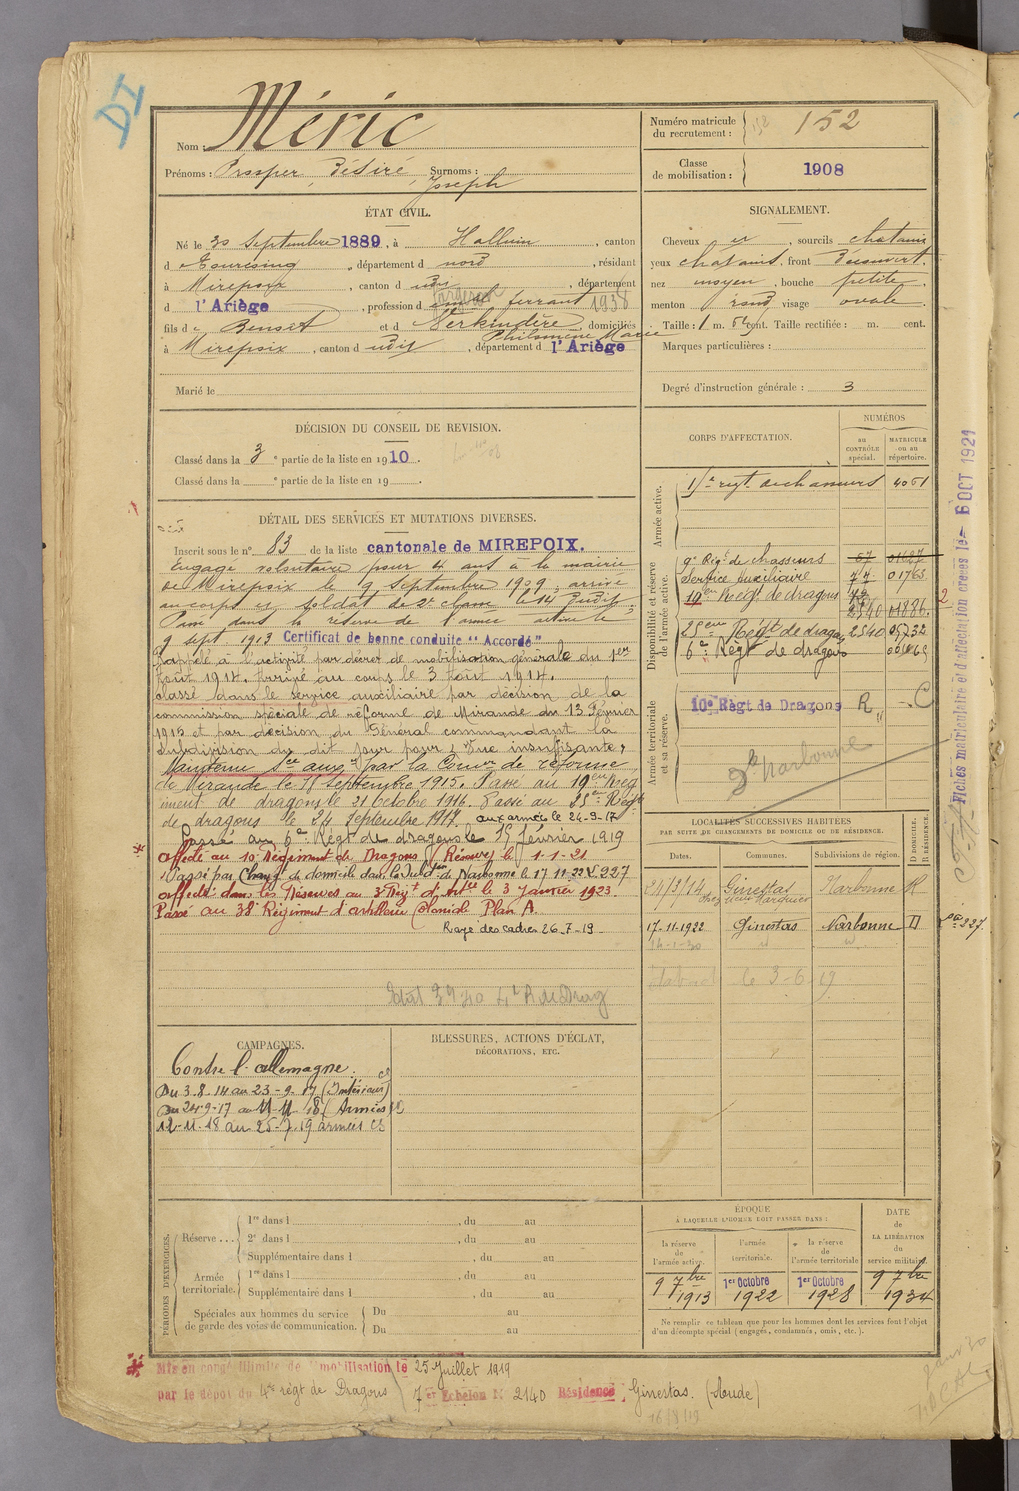 DI
Nom : Méric
Prénoms : Prosper, Désiré, Joseph Surnoms :
Numéro matricule du recrutement : 152
Classe de mobilisation : 1908
ÉTAT CIVIL.
Né le 30 Septembre 1889, à Halluin, canton
d e Tourcoing, département d nord, résidant
à Mirepoix, canton d udit, département
d l'Ariège, profession d ferrant 1938
fils d e Benoit et d Kerkindère Philomène Marie, domiciliés
à Mirepoix, canton d udit, département d l'Ariège
Marié le
SIGNALEMENT.
Cheveux et, sourcils chatains
yeux chatains, front Découvert,
nez moyen, bouche petite
menton rond visage ovale
Taille : 1 m. cent. Taille rectifiée : m. cent.
Marques particulières :
Degré d'instruction générale : 3
DÉCISION DU CONSEIL DE REVISION.
Classé dans la 3e partie de la liste en 1910.
Classé dans la e partie de la liste en 19 .
DÉTAIL DES SERVICES ET MUTATIONS DIVERSES.
Inscrit sous le n° 83 de la liste cantonale de MIREPOIX.
Engagé volontaire pour 4 ans à la mairie
de Mirepoix le 9 Septembre 1909, arrivé
au corps et soldat de 2e classe le 14 dudit,
Passé dans la réserve de l'armée active le
9 sept 1913 Certificat de bonne conduite "Accordé"
Rappelé à l'activité par décret de mobilisation générale du 1er
Août 1914. Arrivé au corps le 3 Août 1914.
Classé dans le service auxiliaire par décision de la
commission spéciale de réforme de Mirande du 13 Février
1915 et par décision du Général commandant la
subdivision du dit jour pour "Vue insuffisante"
Maintenu Sce auxre par la Comon de réforme
de Mirande le 18 Septembre 1915. Passé au 19eme Rég
iment de dragons le 21 Octobre 1916. Passé au 25eme Régt
de dragons le 24 Septembre 1917. aux armées le 24-9-17
Passé au 6e Régt de dragons le 15 février 1919
Affecté au 10e Régiment de Dragons (Réserve) le 1-1-21
Passé par Changt de domicile dans la Subdion de Narbonne le 17-11-22 L 227
Affecté dans les Réserves au 3e Régt d'Artie le 3 Janvier 1923.
Passé au 38e Régiment d'artillerie Coloniale Plan A.
Rayé des cadres 26-7-19
CORPS D'AFFECTATION.
NUMÉROS
au CONTRÔLE spécial.
MATRICULE ou au répertoire.
Armée active.
régt de chasseurs 4051
Disponibilité et réserve de l'armée active.
9e Régt de chasseurs 67 01627
Service auxiliaire 77 01763
19eme Régt de dragons 2540 11886
25eme Régt de dragons 2540 05732
6e Régt de dragons
Armée territoriale et sa réserve.
10e Règt de Dragons R C
Narbonne
Fiches matriculaire et d'affectation créées le 5 OCT 1921
LOCALITÉS SUCCESSIVES HABITÉES
PAR SUITE DE CHANGEMENTS DE DOMICILE OU DE RÉSIDENCE.
Dates. Communes. Subdivisions de région. D DOMICILE. R RÉSIDENCE.
21/3/14 Ginestas Narbonne R
17-11-1922 Ginestas Narbonne D
L 227.
le 3-6-19
CAMPAGNES.
Contre l'allemagne. CS
Du 3-8-14 au 23-9-17 (Intérieur)
Du 24-9-17 au 11-11-18 (Armées)
12-11-18 au 25-7-19 armées CS
BLESSURES, ACTIONS D'ÉCLAT,
DÉCORATIONS, ETC.
PÉRIODES D'EXERCICES.
Réserve . . .
1re dans l , du au
2e dans l , du au
Supplémentaire dans l , du au
Armée territoriale.
1re dans l , du au
Supplémentaire dans l , du au
Spéciales aux hommes du service de garde des voies de communication.
Du au
Du au
ÉPOQUE
À LAQUELLE L'HOMME DOIT PASSER DANS :
la réserve de l'armée active.
l'armée territoriale.
la réserve de l'armée territoriale
DATE de LA LIBÉRATION du service militaire.
9 7bre 1913
1er Octobre 1922
1er Octobre 1928
9 7bre 1934
Ne remplir ce tableau que pour les hommes dont les services font l'objet
d'un décompte spécial (engagés, condamnés, omis, etc.).
Mis en congé illimité de démobilisation le 25 Juillet 1919
par le dépôt du 4me régt de Dragons 7er Echelon N° 2140 Résidence Ginestas (Aude)
16/8/19